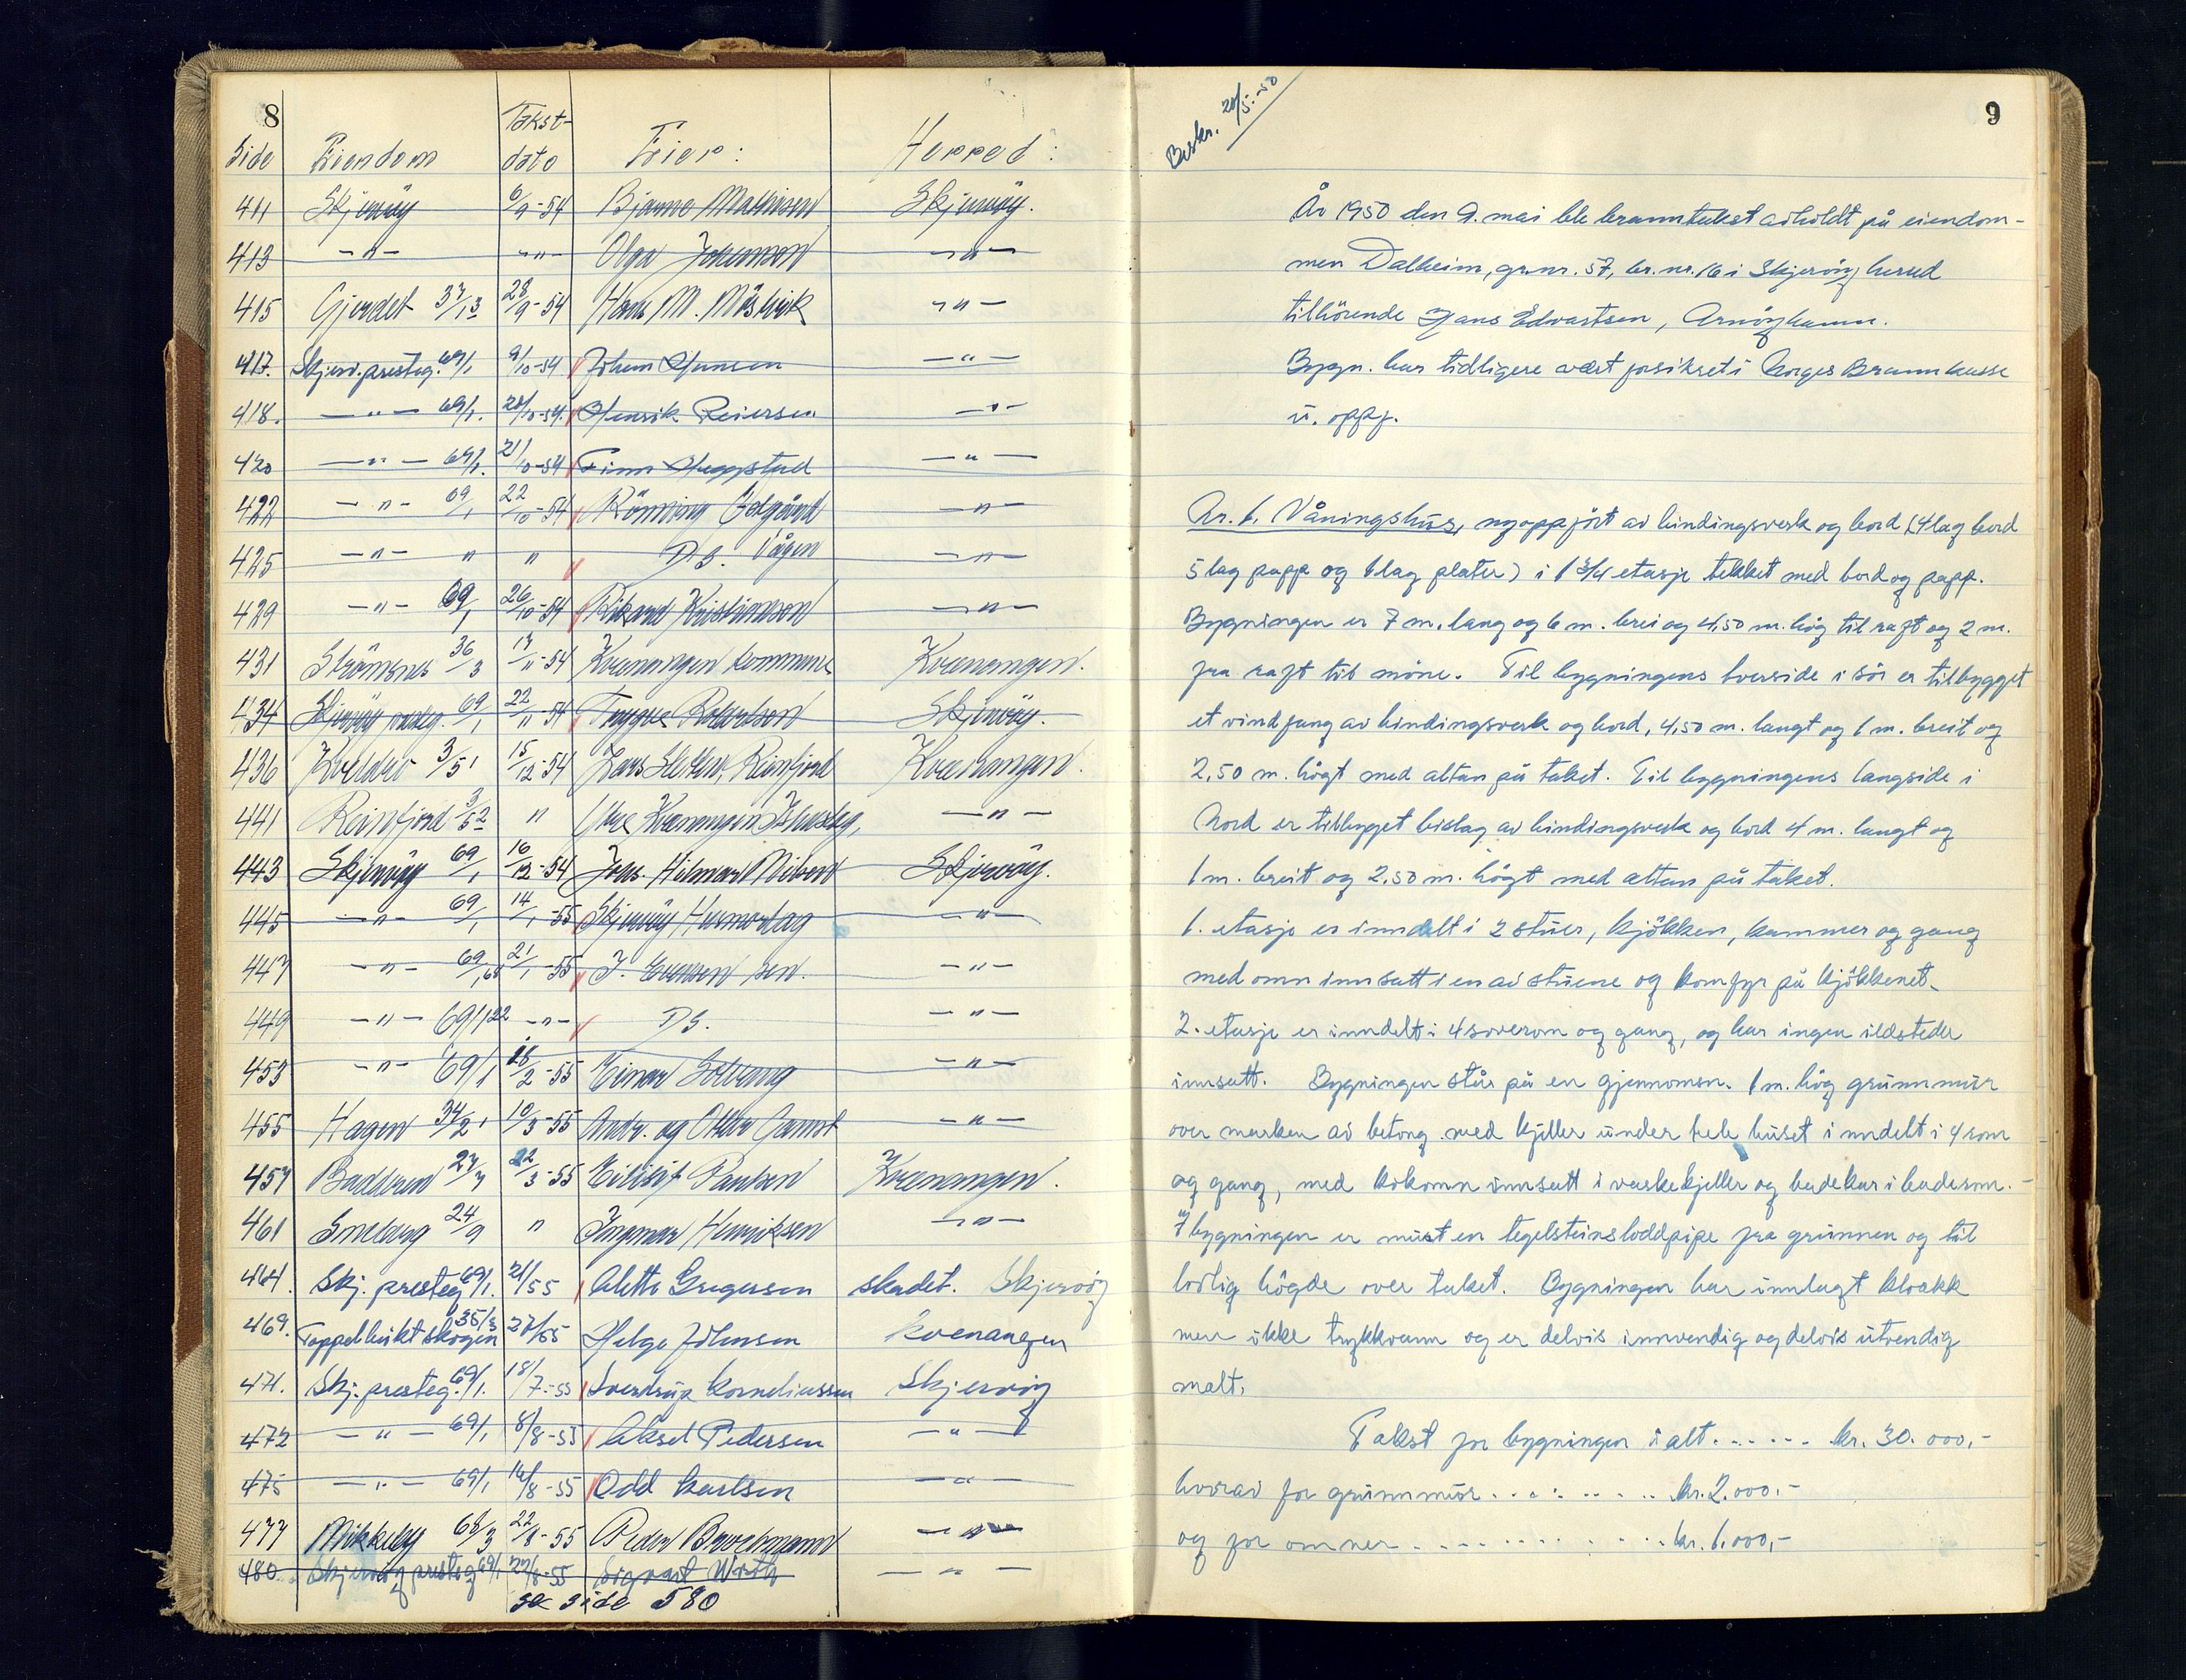 8
Side Eiendom Takst-dato Eier: Herred:
411 Skjervöy 6/9-54 Bjarne Mathisen Skjervöy.
413 -"- -"- Olga Johansen -"-
415 Gjerdet 37/13 28/9-54 Hans M. -"-
417. Skjerv. presteg. 69/1 9/10-54 Johan Hansen -"-
418. -"- 69/1. 20/10-54. Henrik Reiersen -"-
420 -"- 69/1. 21/10-54 Finn Heggstad -"-
422 -"- 69/1 22/10-54 Rönning -"-
425 -"- " " D.S. Vågen -"-
429 -"- 69/1 26/10-54 Rikard Kristiansen -"-
431 Strömsnes 36/3 17/11-54 Kvænangen kommune Kvænangen.
434 Skjervöy presteg. 69/1 22/11-54 Trygve Robertsen Skjervöy.
436 Kveldro 3/51 15/12-54 Lars Reinfjord Kvænangen.
441 Reinfjord 3/52 " Kvænangen -"-
443 Skjervöy 69/1 16/12-54 Joas. Hilmar Nilsen Skjervöy.
445 -"- 69/1 14/1-55 Skjervöy Husmorlag -"-
447 -"- 69/1,68 21/1-55 J. sen. -"-
449 -"- 69/1,122 -"- D.S. -"-
453 -"- 69/1 18/2-55 Einar Solvang -"-
455 Hagen 34/21 10/3-55 Andr. og Ottar Gamst -"-
457 Badderen 27/7 22/3-55 Eilif Paulsen Kvænangen.
461 Sneberg 24/9 " Ingmar Henriksen -"-
464. Skj. presteg. 69/1. 21/1 55 Alette Gregersen skadet. Skjervöy
469. Toppelbuktskogen 35/3 27/ 55 Helge Johnsen Kvenangen
471. Skj. presteg. 69/1. 18/7-55 Sverdrup Korneliussen Skjervöy
472 -"- 69/1 8/8-55 Aksel Pedersen -"-
475 -"- 69/1 16/8-55 Odd Karlsen -"-
477 Mikkelby 68/3 22/8-55 Peder -"-
480 Skjervöy presteg 69/1 27/8-55 Sigvart Wirth -"-
se side 580
Beskr. 20/5.-50
9
År 1950 den 9. mai ble branntakst avholdt på eiendom-
men Dalheim, gr.nr. 57, br.nr. 16 i Skjervöy herred
tilhörende Hans Edvartsen, Arnöyhamn.
Bygn. har tidligere vært forsikret i Norges Brannkasse
u. oppf.
Nr. 1. Våningshus, nyoppfört av bindingsverk og bord (4 lag bord
5 lag papp og 1 lag plater) i 1 3/4 etasje tekket med bord og papp.
Bygningen er 7 m. lang og 6 m. brei og 4,50 m. hög til raft og 2 m.
fra raft til möne. Til bygningens tverside i sör er tilbygget
et vindfang av bindingsverk og bord, 4,50 m. langt og 1 m. breit og
2,50 m. högt med altan på taket. Til bygningens langside i
Nord er tilbygget bislag av bindingsverk og bord 4 m. langt og
1 m. breit og 2,50 m. högt med altan på taket.
1. etasje er inndelt i 2 stuer, kjökken, kammer og gang
med omn innsatt i en av stuene og komfyr på kjökkenet.
2. etasje er inndelt i 4 soverom og gang, og har ingen ildsteder
innsatt. Bygningen står på en gjennomsn. 1 m. hög grunnmur
over marken av betong med kjeller under hele huset inndelt i 4 rom
og gang, med kokomn innsatt i vaskekjeller og badekar i baderom.
I bygningen er murt en tegelsteinsloddpipe fra grunnen og til
lovlig högde over taket. Bygningen har innlagt kloakk
men ikke trykkvann og er delvis innvendig og delvis utvendig
malt.
Takst for bygningen i alt...... kr. 30.000,-
hvorav for grunnmur......... kr. 2.000,-
og for omner............ kr. 1.000,-